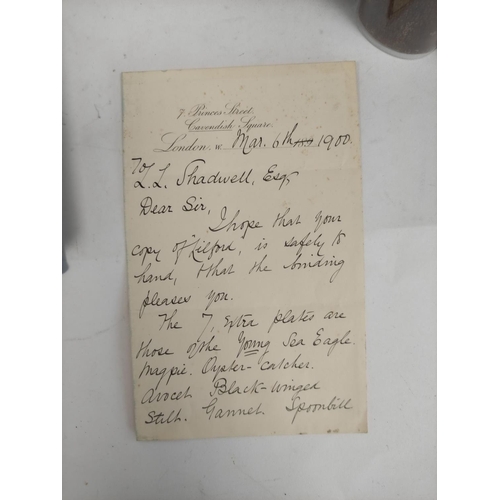 7. Princes Street,
Cavendish Square.
London. W. Mar. 6th 189 1900.
To
L. L. Shadwell, Esq,
Dear Sir,
I hope that your
copy of Lilford, is safely to
hand, & that the binding
pleases you.
The 7, extra plates are
those of the Young Sea Eagle.
Magpie. Oyster-catcher.
Avocet Black-winged
Stilt. Gannet. Spoonbill